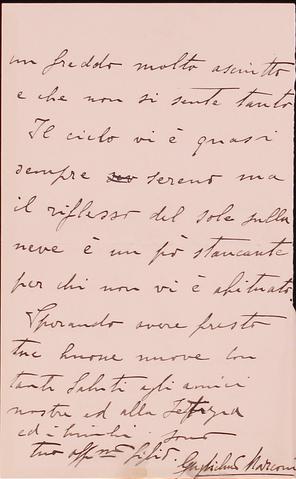 un freddo molto asciutto
e che non si sente tanto
Il cielo vi è quasi
sempre sereno ma
il riflesso del sole sulla
neve è un pò stancante
per chi non vi è abituato
Sperando avere presto
tue buone nuove con
tanti saluti agli amici
nostri ed alla
ed i bimbi sono
tuo aff mo
Guglielmo Marconi